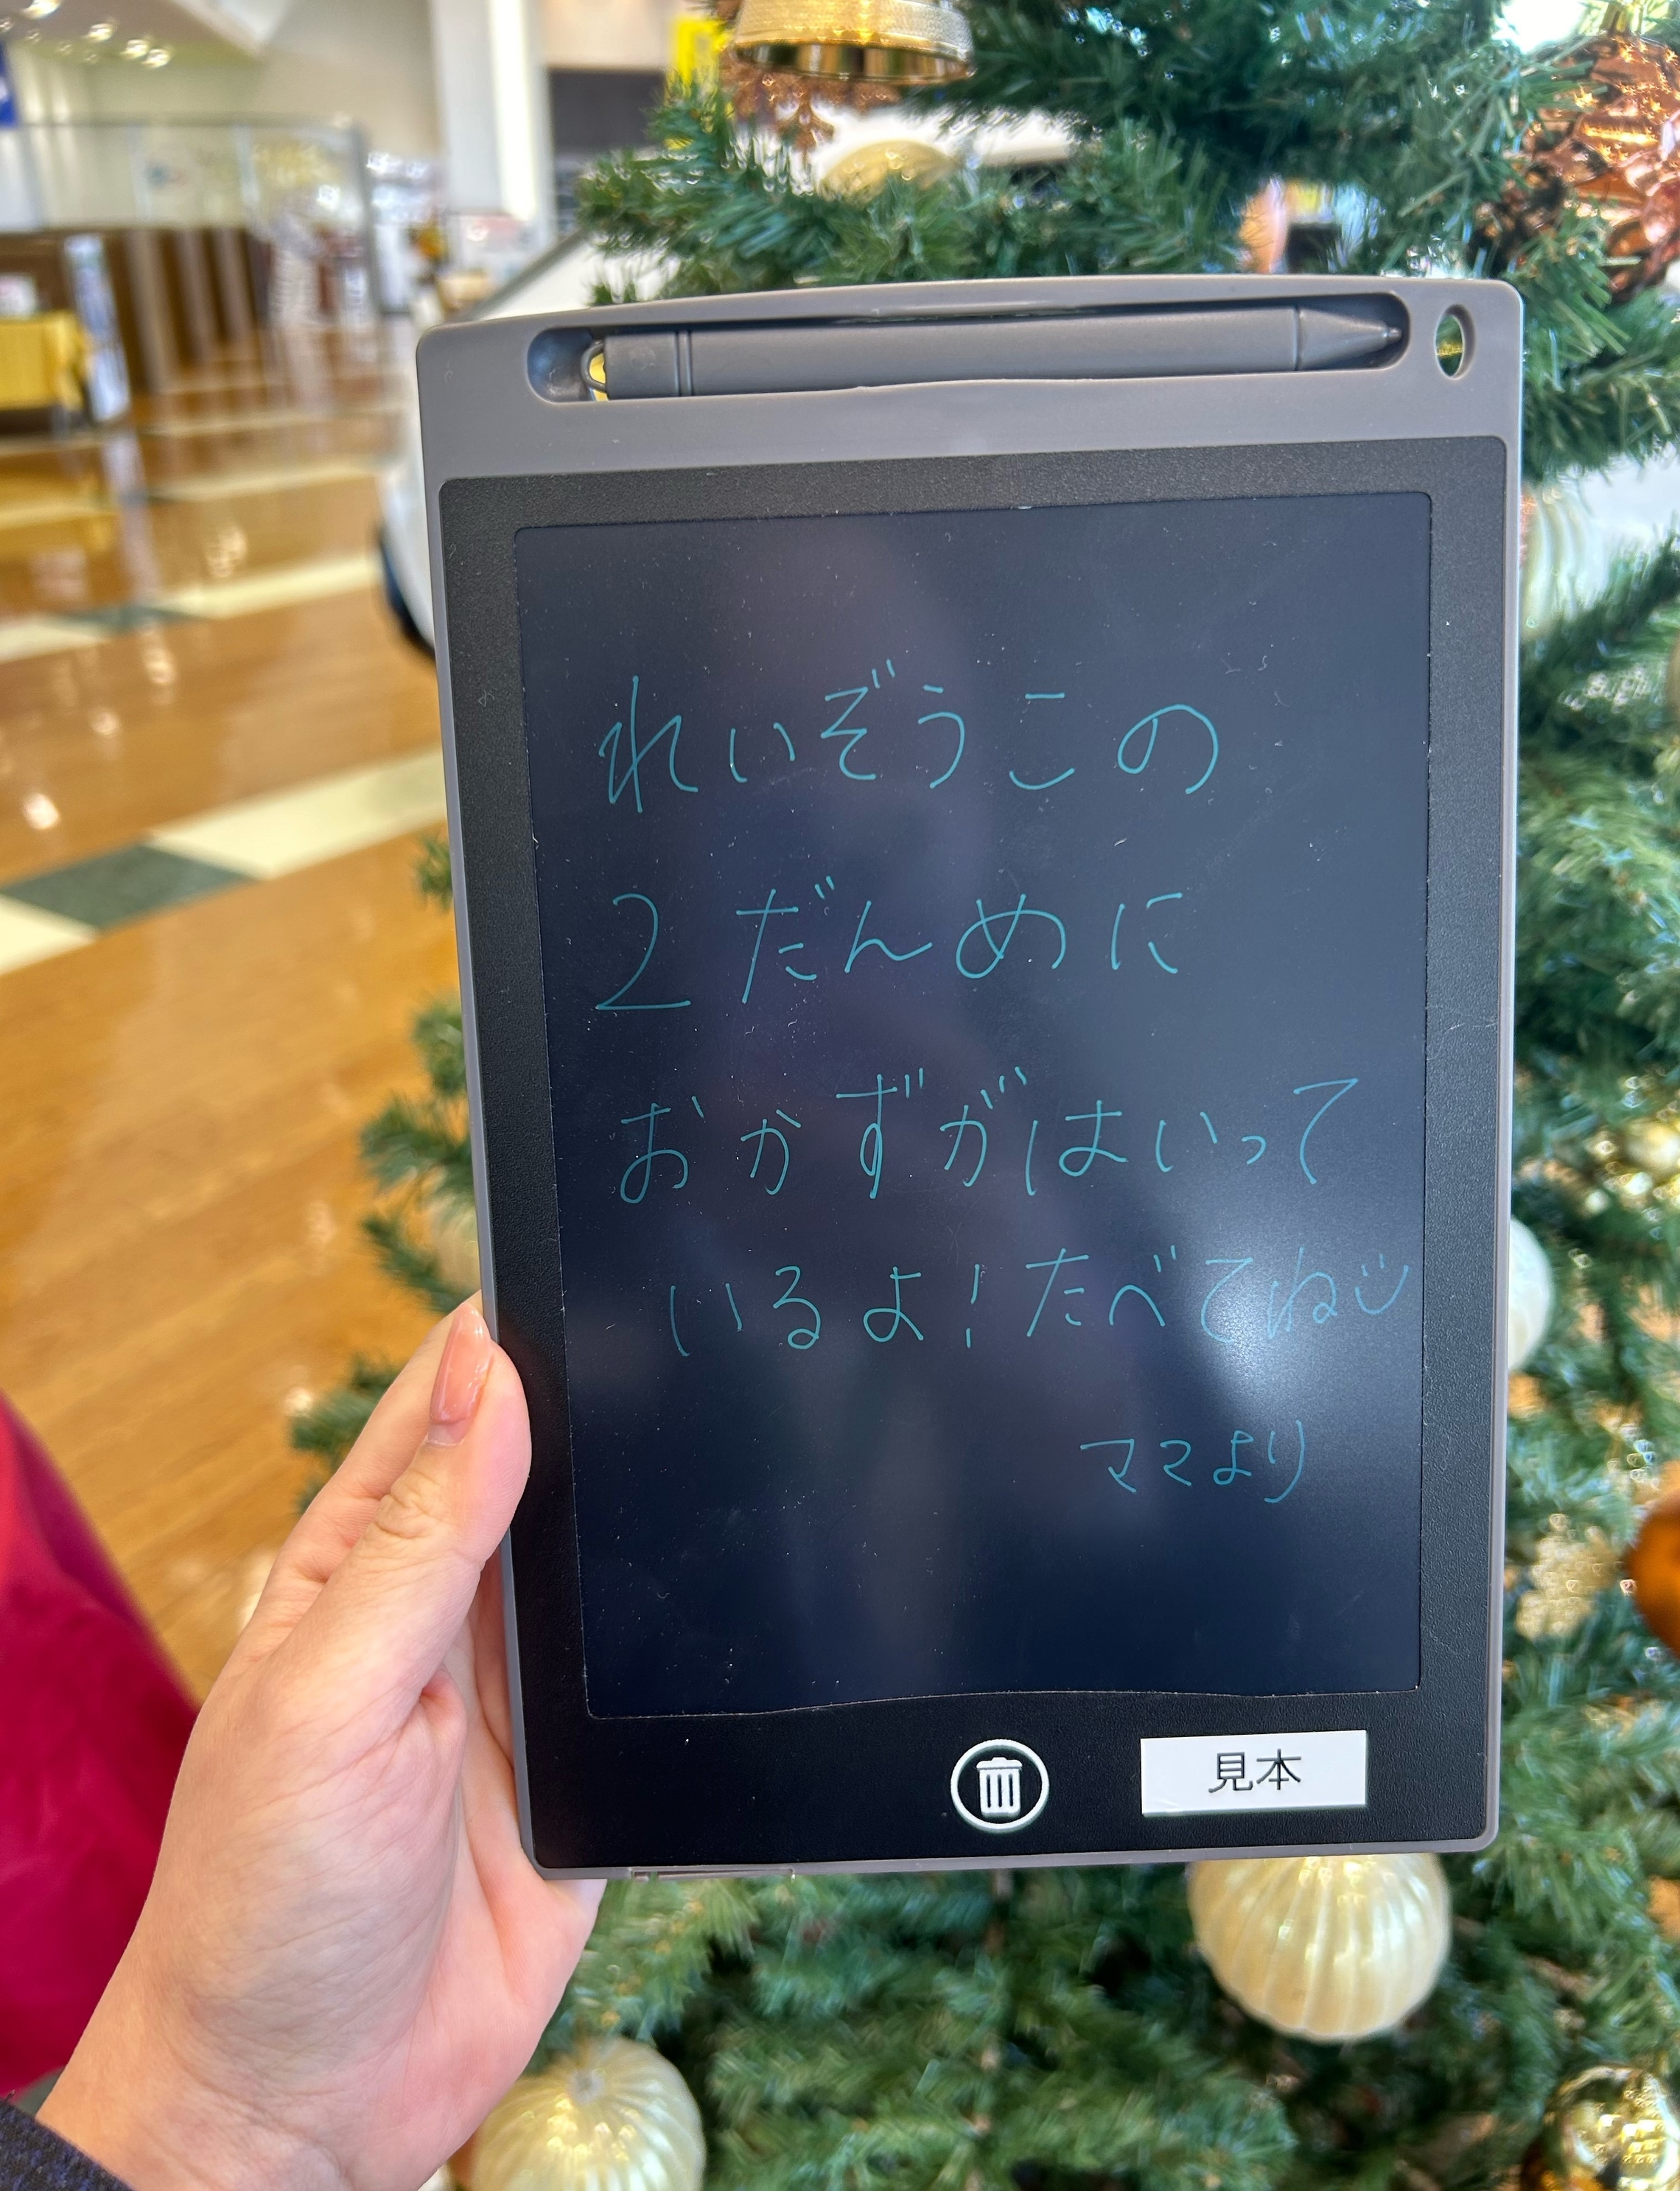 れいぞうこの
2だんめに
おかずがはいって
いるよ!たべてね
ママより
見本